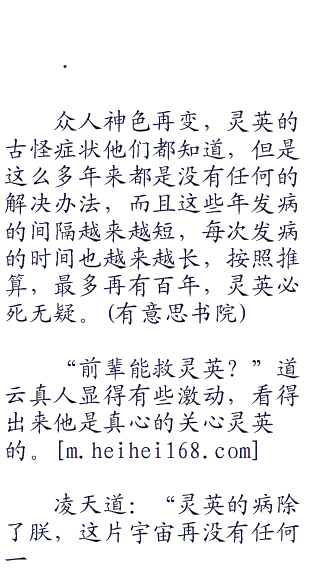 .
众人神色再变，灵英的
古怪症状他们都知道，但是
这么多年来都是没有任何的
解决办法，而且这些年发病
的间隔越来越短，每次发病
的时间也越来越长，按照推
算，最多再有百年，灵英必
死无疑。(有意思书院)
“前辈能救灵英？”道
云真人显得有些激动，看得
出来他是真心的关心灵英
的。[m.heihei168.com]
凌天道：“灵英的病除
了朕，这片宇宙再没有任何